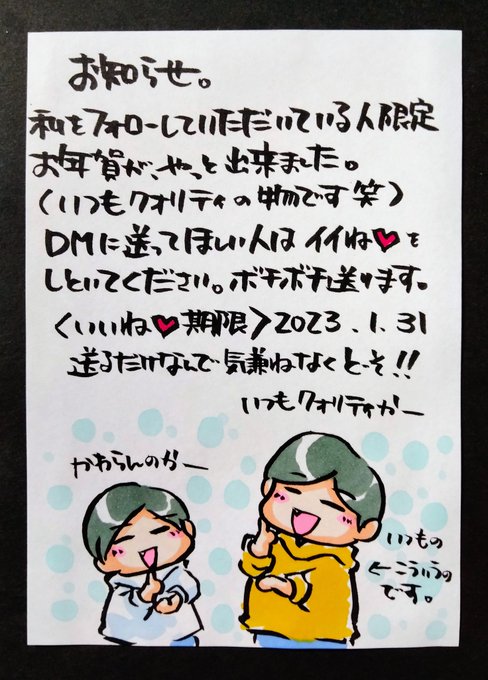 お知らせ。
私をフォローしていただいている人限定
お年賀が、やっと出来ました。
(いつもクオリティの物です笑)
DMに送ってほしい人はイイね♥を
しといてください。ボチボチ送ります。
<いいね♥期限>2023.1.31
送るだけなんで気兼ねなくどーぞ!!
いつもクオリティかー
かわらんのかー
いつもの
←こういうの
です。